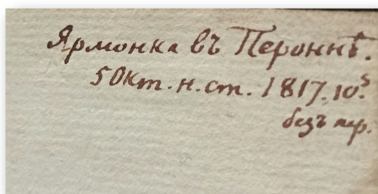 Ярмонка въ Пероннѣ.
5 Окт. н. ст. 1817.
безъ пер.